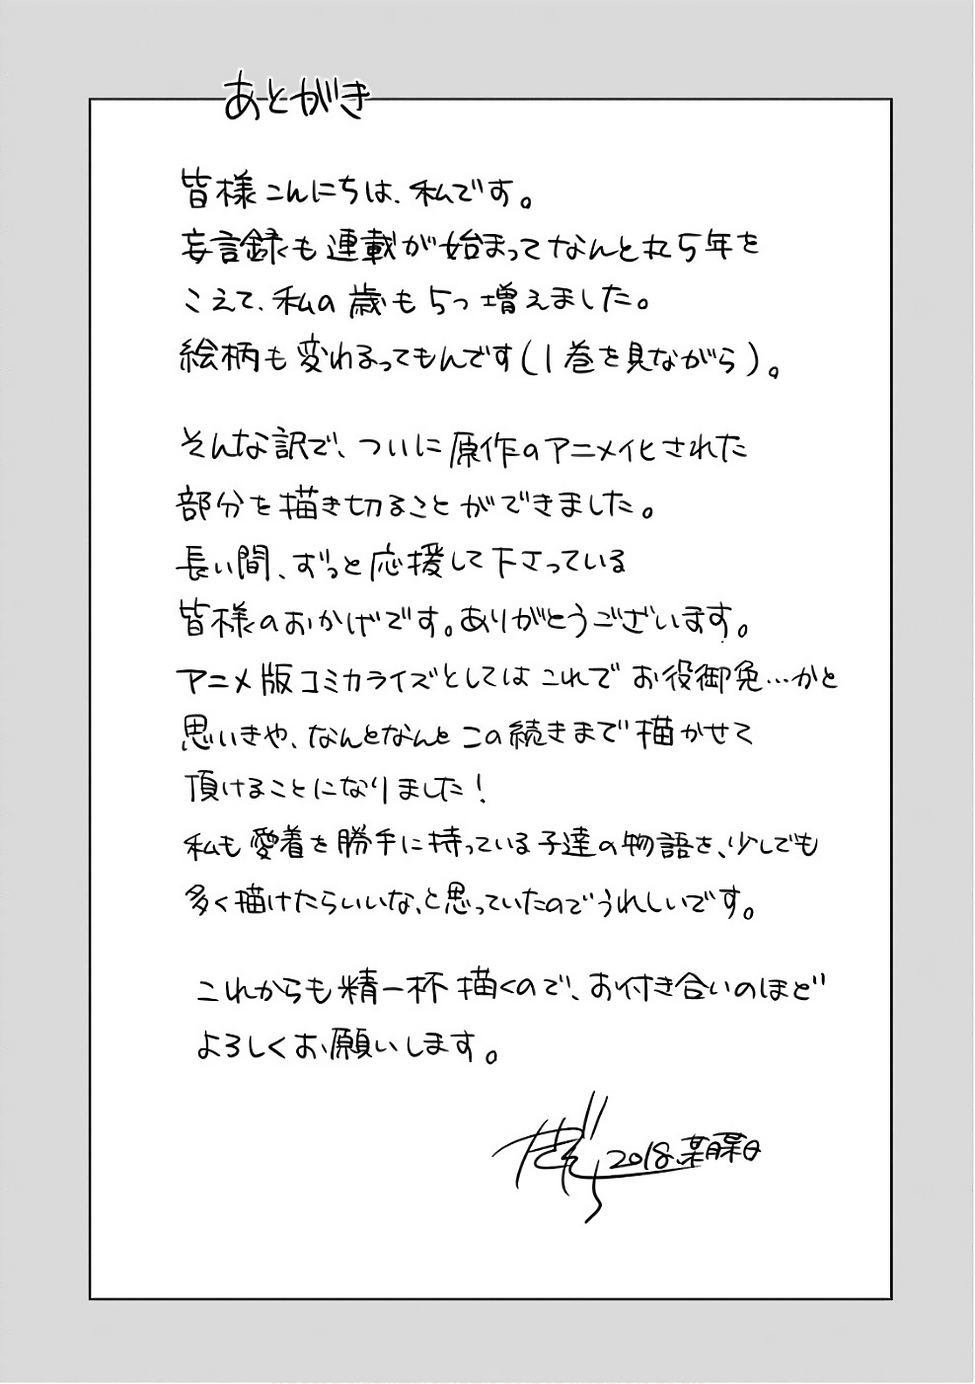 あとがき
皆様こんにちは、私です。
妄言録も連載が始まってなんと丸5年を
こえて、私の歳も5つ増えました。
絵柄も変わるってもんです(1巻を見ながら)。
そんな訳で、ついに原作のアニメイヒされた
部分を描き切ることができました。
長い間、ずっと応援して下さっている
皆様のおかげです。ありがとうございます。
アニメ版コミカライズとしてはこれでお役御免…かと
思いきや、なんとなんとこの続きまで描かせて
頂けることになりました!
私も愛着を勝手に持っている子達の物語を、少しでも
多く描けたらいいな、と思っていたのでうれしいです。
これからも精一杯描くので、お付き合いのほど
よろしくお願いします。
2018.某月某日